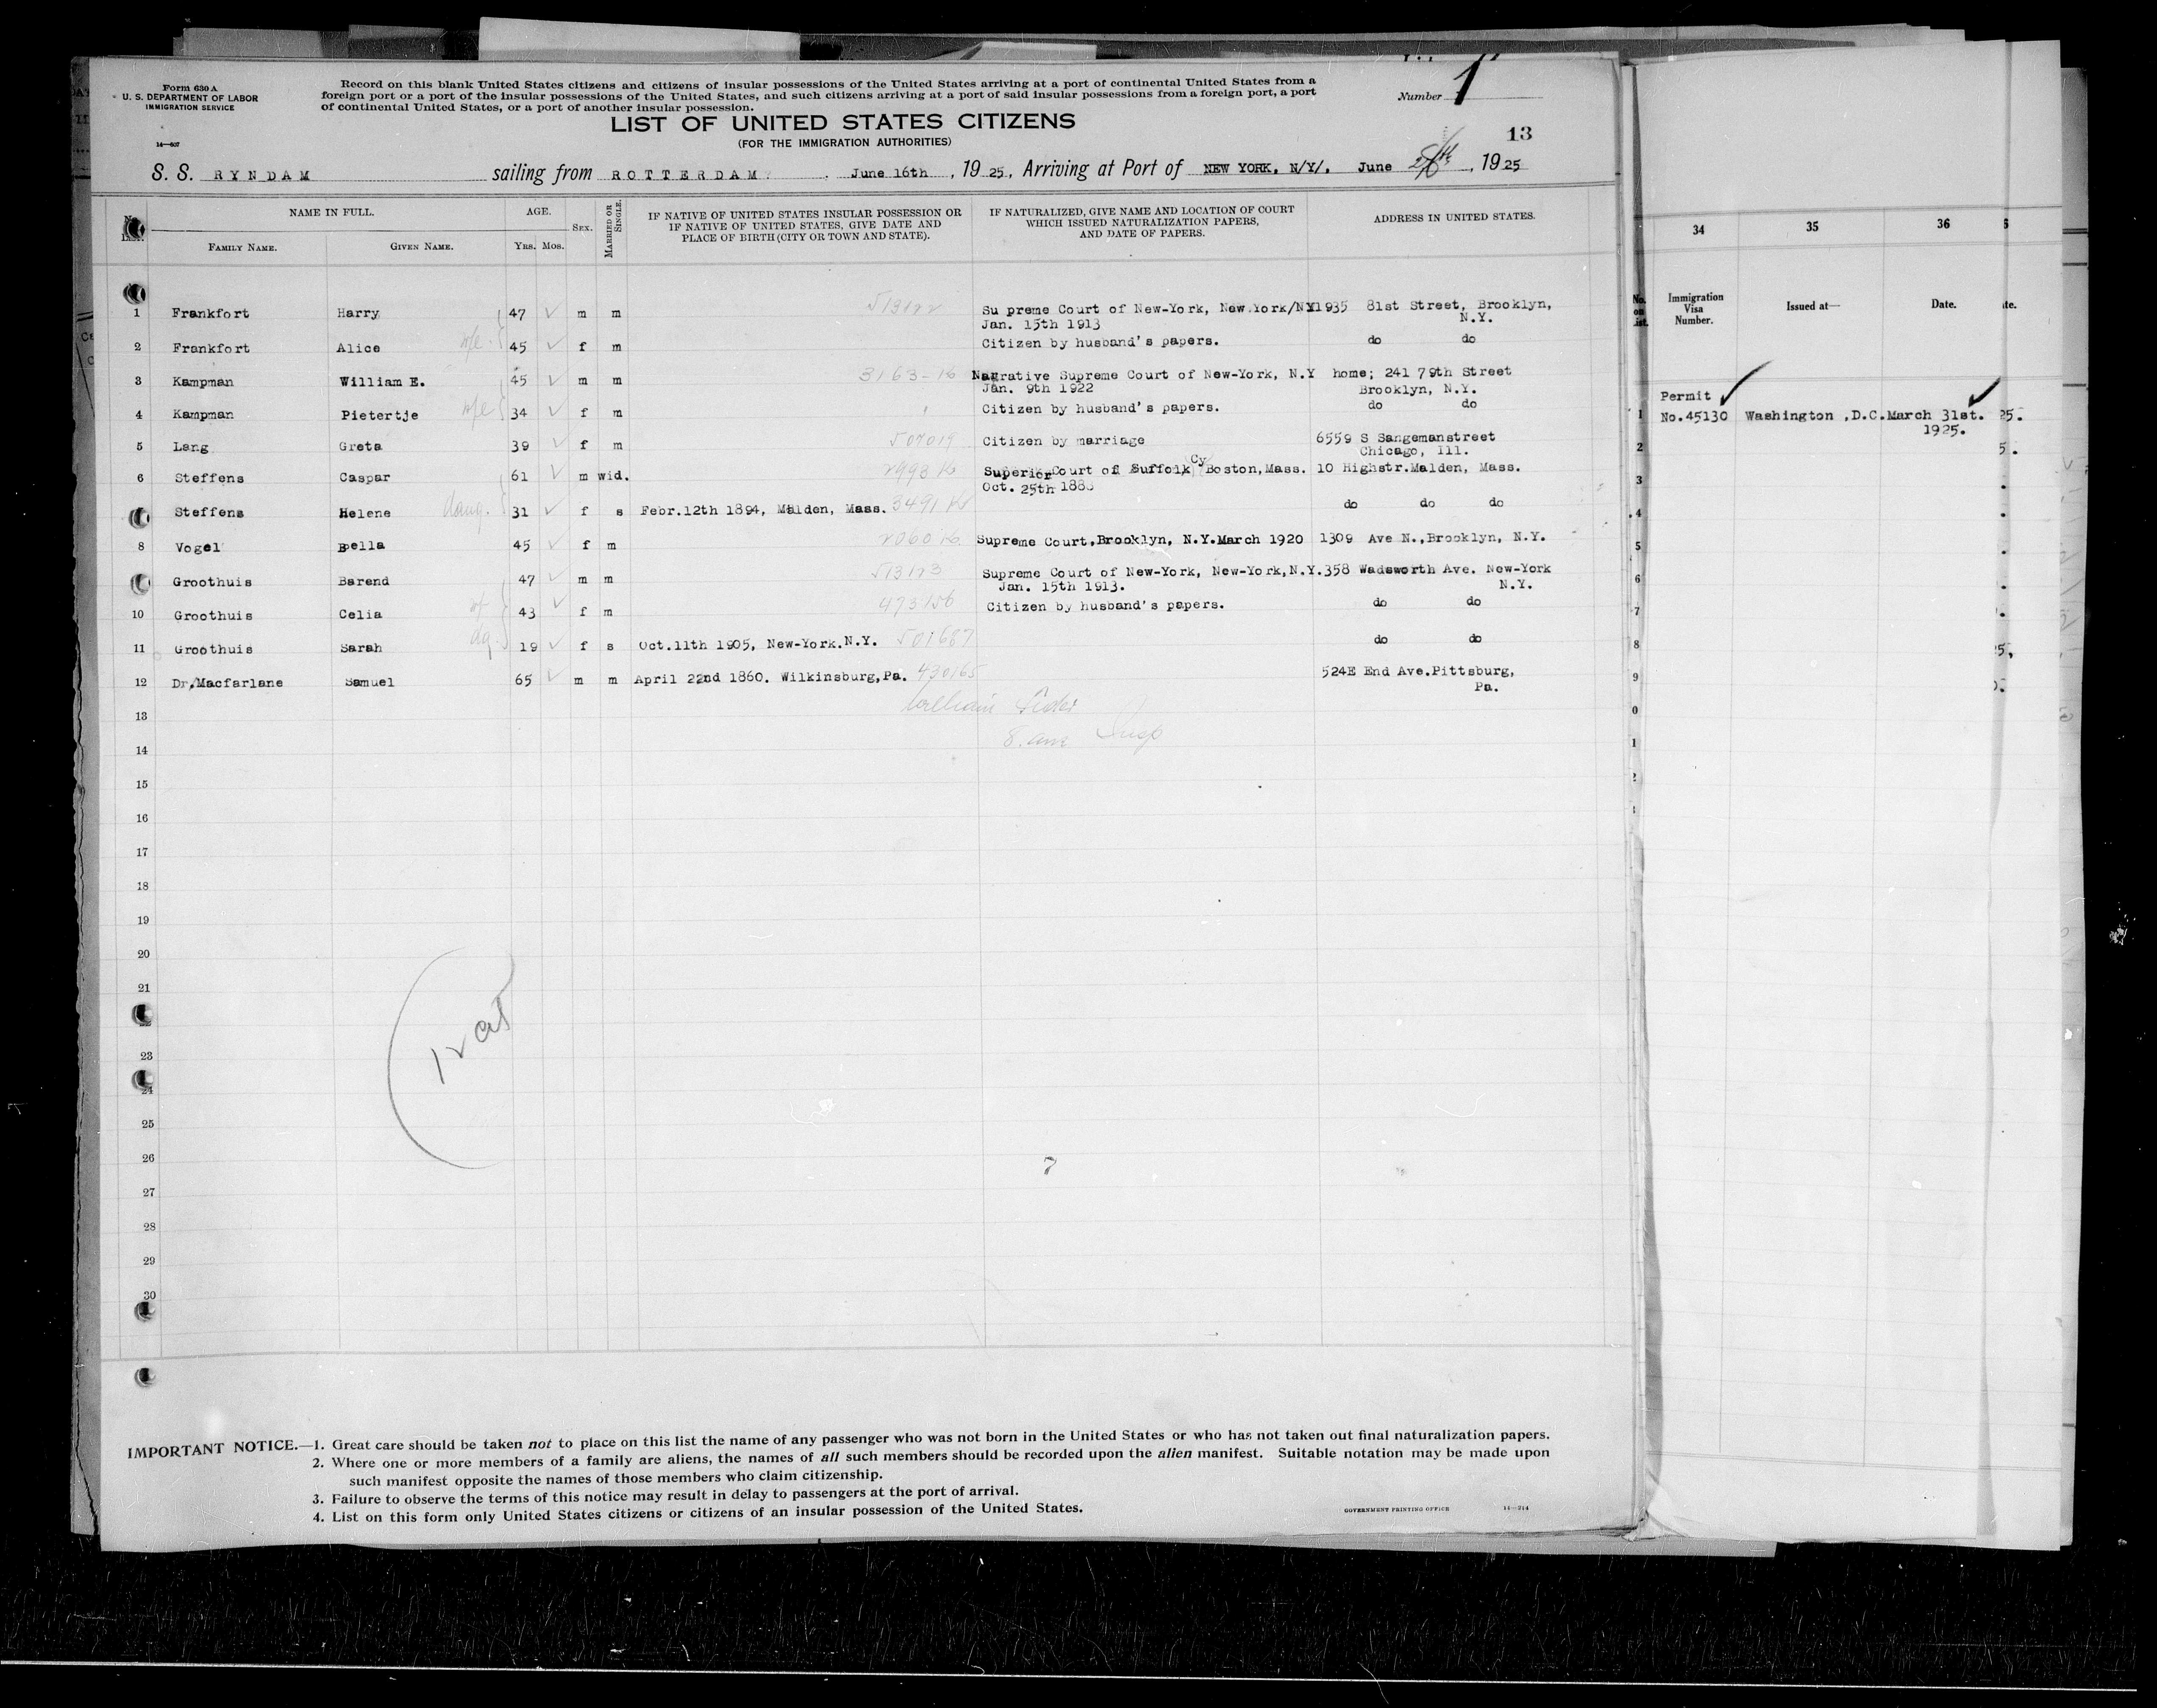 Form 630 A
U. S. DEPARTMENT OF LABOR
IMMIGRATION SERVICE
14—607
Record on this blank United States citizens and citizens of insular possessions of the United States arriving at a port of continental United States from a
foreign port or a port of the insular possessions of the United States, and such citizens arriving at a port of said insular possessions from a foreign port, a port
of continental United States, or a port of another insular possession.
Number 1
LIST OF UNITED STATES CITIZENS
(FOR THE IMMIGRATION AUTHORITIES)
13
S. S. RYNDAM sailing from ROTTERDAM. June 16th, 1925, Arriving at Port of NEW YORK, N/Y/. June , 1925
NAME IN FULL. AGE. SEX. MARRIED OR SINGLE. IF NATIVE OF UNITED STATES INSULAR POSSESSION OR IF NATIVE OF UNITED STATES, GIVE DATE AND PLACE OF BIRTH (CITY OR TOWN AND STATE). IF NATURALIZED, GIVE NAME AND LOCATION OF COURT WHICH ISSUED NATURALIZATION PAPERS, AND DATE OF PAPERS. ADDRESS IN UNITED STATES.
FAMILY NAME. GIVEN NAME. YRS. MOS.
1 Frankfort Harry 47 m m Su preme Court of New-York, New.York/NY 1935 81st Street, Brooklyn,
Jan. 15th 1913 N.Y.
2 Frankfort Alice wife 45 f m Citizen by husband's papers. do do
3 Kampman William E. 45 m m 3163-16 Nagrative Supreme Court of New-York, N.Y home; 241 79th Street
Jan. 9th 1922 Brooklyn, N.Y.
4 Kampman Pietertje wife 34 f m Citizen by husband's papers. do do
5 Lang Greta 39 f m Citizen by marriage 6559 S Sangemanstreet
Chicago, Ill.
6 Steffens Caspar 61 m wid. Superior Court of Suffolk Cy Boston, Mass. 10 Highstr.Malden, Mass.
Oct. 25th 188
Steffens Helene daug. 31 f s Febr.12th 1894, Malden, Mass. do do do
8 Vogel Bella 45 f m Supreme Court,Brooklyn, N.Y.March 1920 1309 Ave N.,Brooklyn, N.Y.
Groothuis Barend 47 m m Supreme Court of New-York, New-York,N.Y. 358 Wadsworth Ave. New-York
Jan. 15th 1913. N.Y.
10 Groothuis Celia wf 43 f m 473156 Citizen by husband's papers. do do
11 Groothuis Sarah dg. 19 f s Oct.11th 1905, New-York.N.Y. 501687 do do
12 Dr.Macfarlane Samuel 65 m m April 22nd 1860. Wilkinsburg,Pa. 430165 524E End Ave.Pittsburg,
Pa.
13 William
14 Insp
15
16
17
18
19
20
21
23
24
25
26
27
28
29
30
IMPORTANT NOTICE.—1. Great care should be taken not to place on this list the name of any passenger who was not born in the United States or who has not taken out final naturalization papers.
2. Where one or more members of a family are aliens, the names of all such members should be recorded upon the alien manifest. Suitable notation may be made upon
such manifest opposite the names of those members who claim citizenship.
3. Failure to observe the terms of this notice may result in delay to passengers at the port of arrival.
4. List on this form only United States citizens or citizens of an insular possession of the United States.
GOVERNMENT PRINTING OFFICE 14—214
34 35 36
Immigration Visa Number. Issued at— Date.
Permit
No.45130 Washington ,D.C. March 31st.
1925.